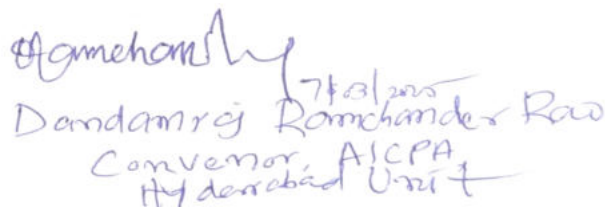 Ramchand
7/03/2025
Dandamraj Ramchander Rao
Convenor, AICPA,
Hyderabad Unit